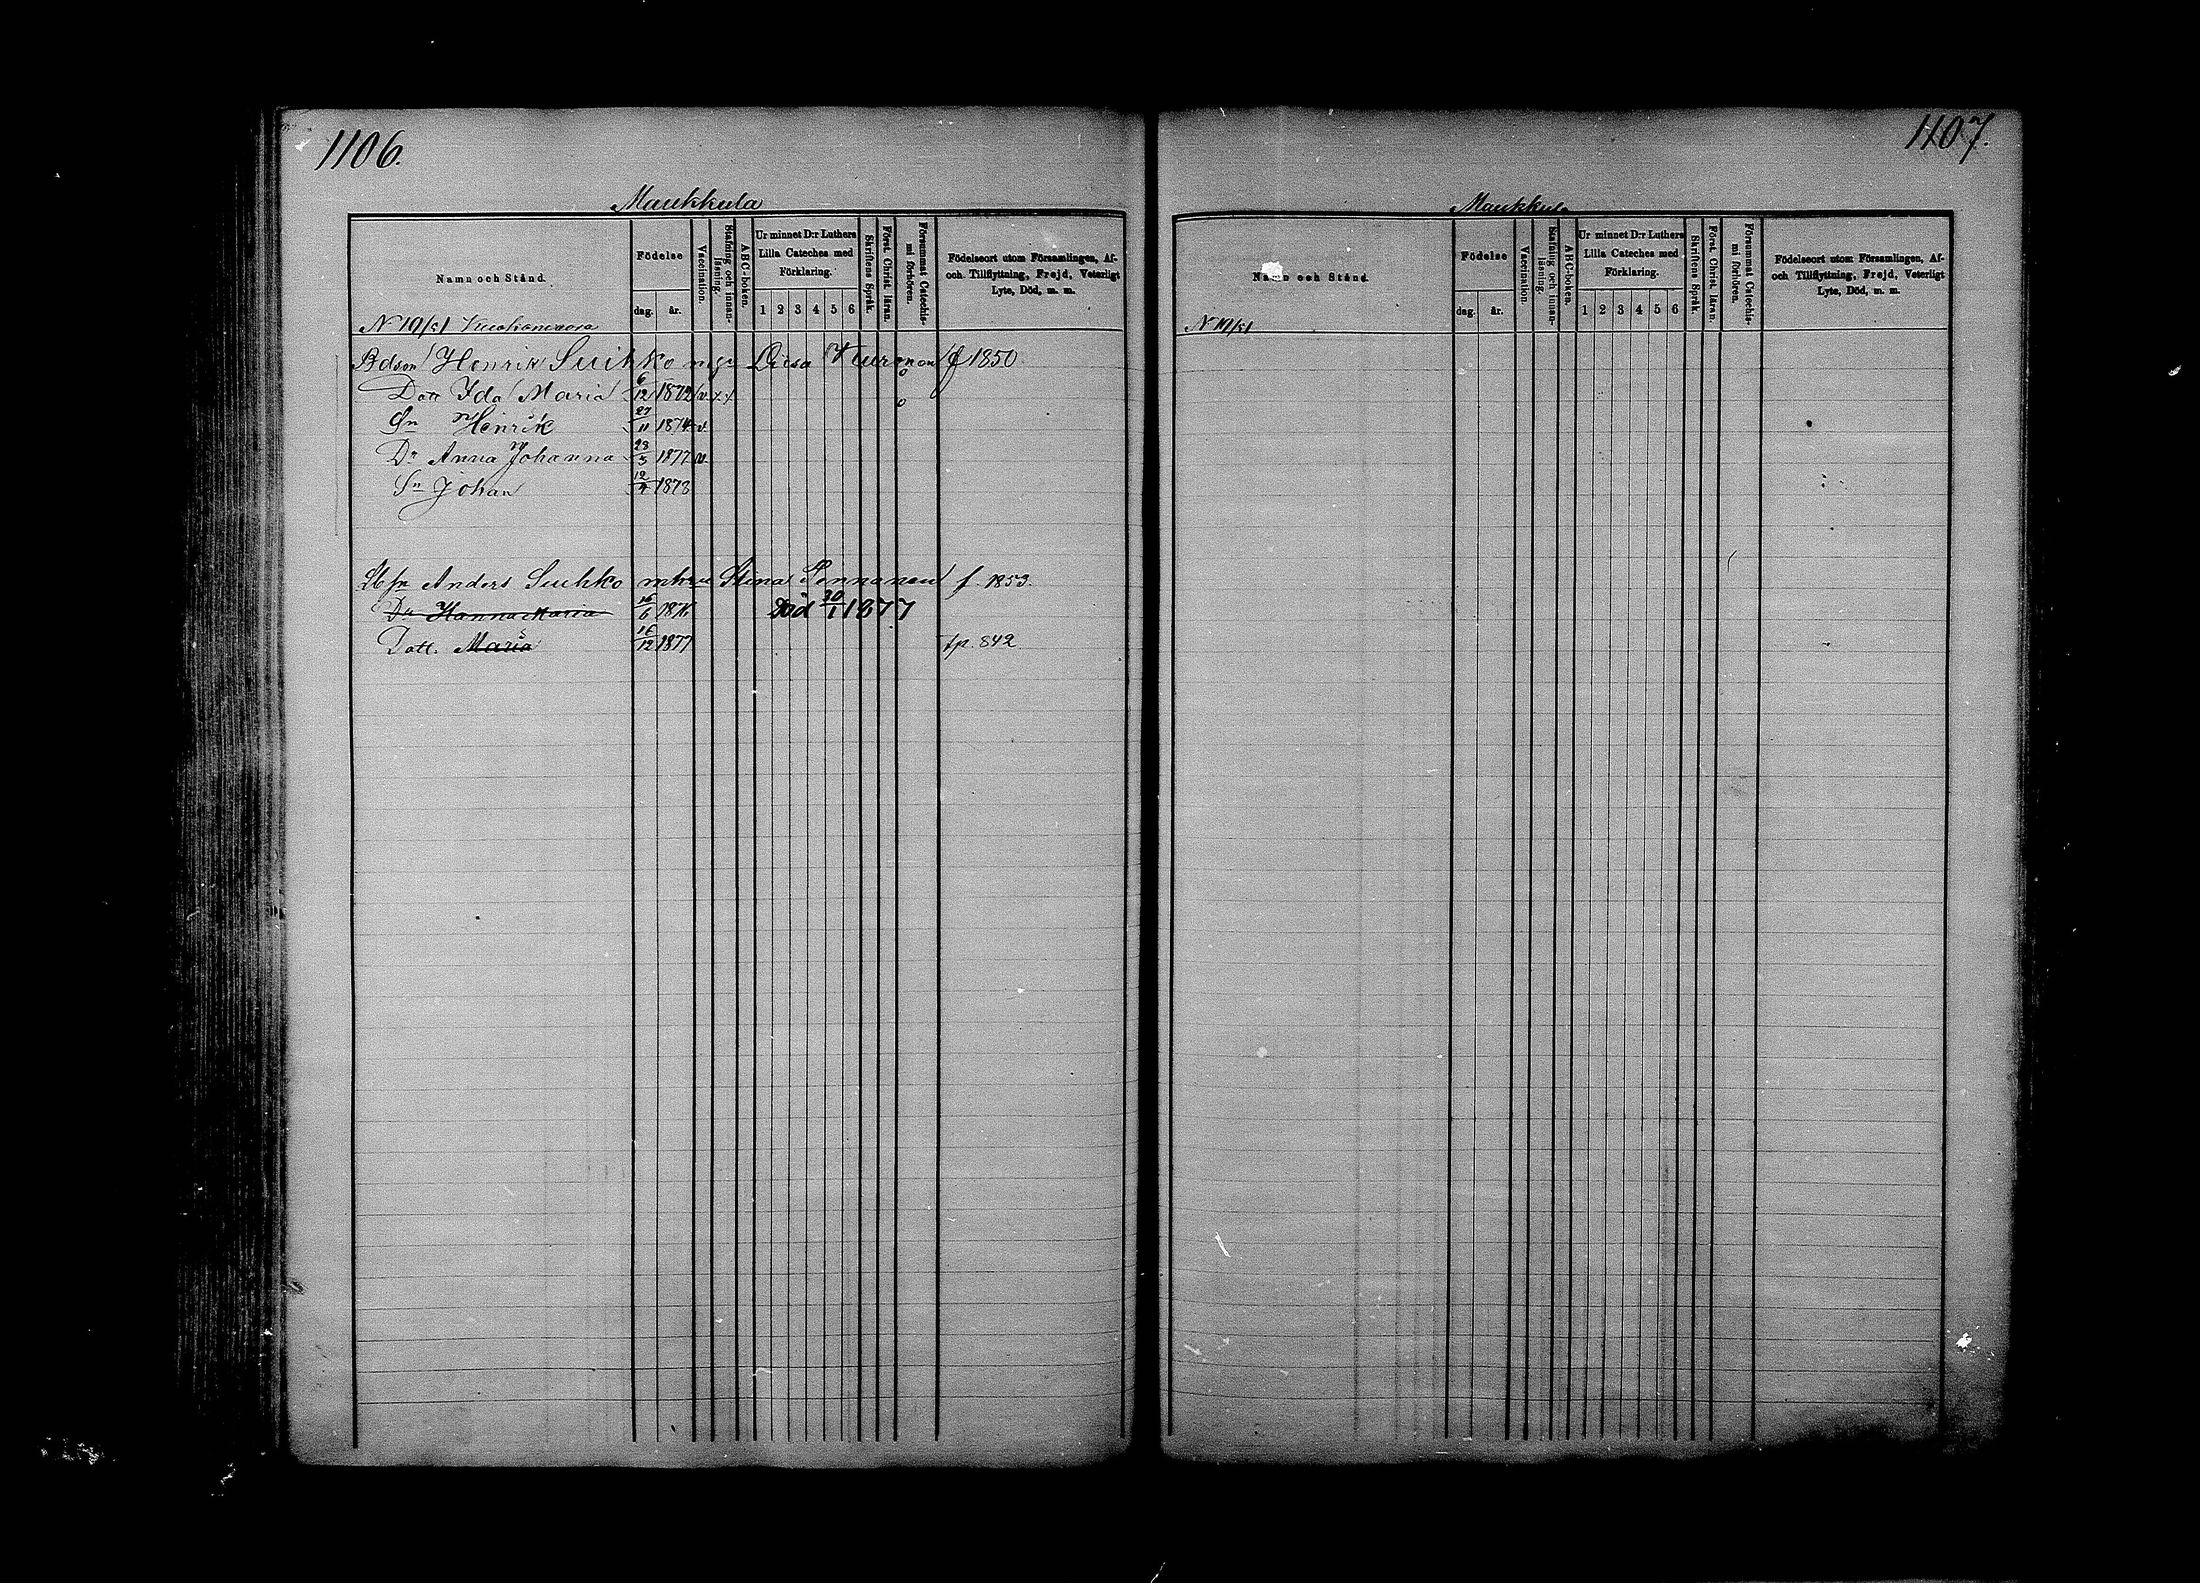 1106.
Maukkula
Namn och Stånd.
Födelse
dag.
år.
Vaccination.
Stafning och innanläsning.
ABC-boken.
Ur minnet D:r Luthers
Lilla Cateches med
Förklaring.
1 2 3 4 5 6
Skriftens Språk.
Först. Christ. läran.
Försummat Catechismi förhören.
Födelseort utom Församlingen, Af-
och Tillflyttning, Frejd, Veterligt
Lyte, Död, m. m.
N 19/51
Bdson Henrik Suihko Disa f 1850.
Dott Ida Maria 6/12 1872 v.
Sn Henrik 27/11 1874 v.
Dr Anna Johanna 23/3 1877 v.
Sn Johan 12/4 1873
Anders Suihko Stina Pennanen f. 1853.
Dr Hanna Maria 16/6 Död 30/1 1877
Dott. Maria 16/12 1877 fp. 842.
1107.
Maukkula
Namn och Stånd.
Födelse
dag.
år.
Vaccination.
Stafning och innanläsning.
ABC-boken.
Ur minnet D:r Luthers
Lilla Cateches med
Förklaring.
1 2 3 4 5 6
Skriftens Språk.
Först. Christ. läran.
Försummat Catechismi förhören.
Födelseort utom Församlingen, Af-
och Tillflyttning, Frejd, Veterligt
Lyte, Död, m. m.
N 19/51